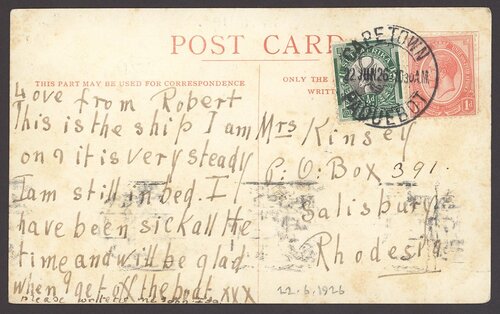 POST CARD
THIS PART MAY BE USED FOR CORRESPONDENCE
ONLY THE
WRITT
CAPETOWN
22 JUN 26
30AM
PAQUEBOT
1D
Love from Robert
This is the ship I am
on it is very steady
I am still in bed. I
have been sick all the
time and will be glad
when I get off the boat xxx
please write to me soon
Mrs Kinsey
P. O. Box 391.
Salisbury
Rhodesia
22.6.1926